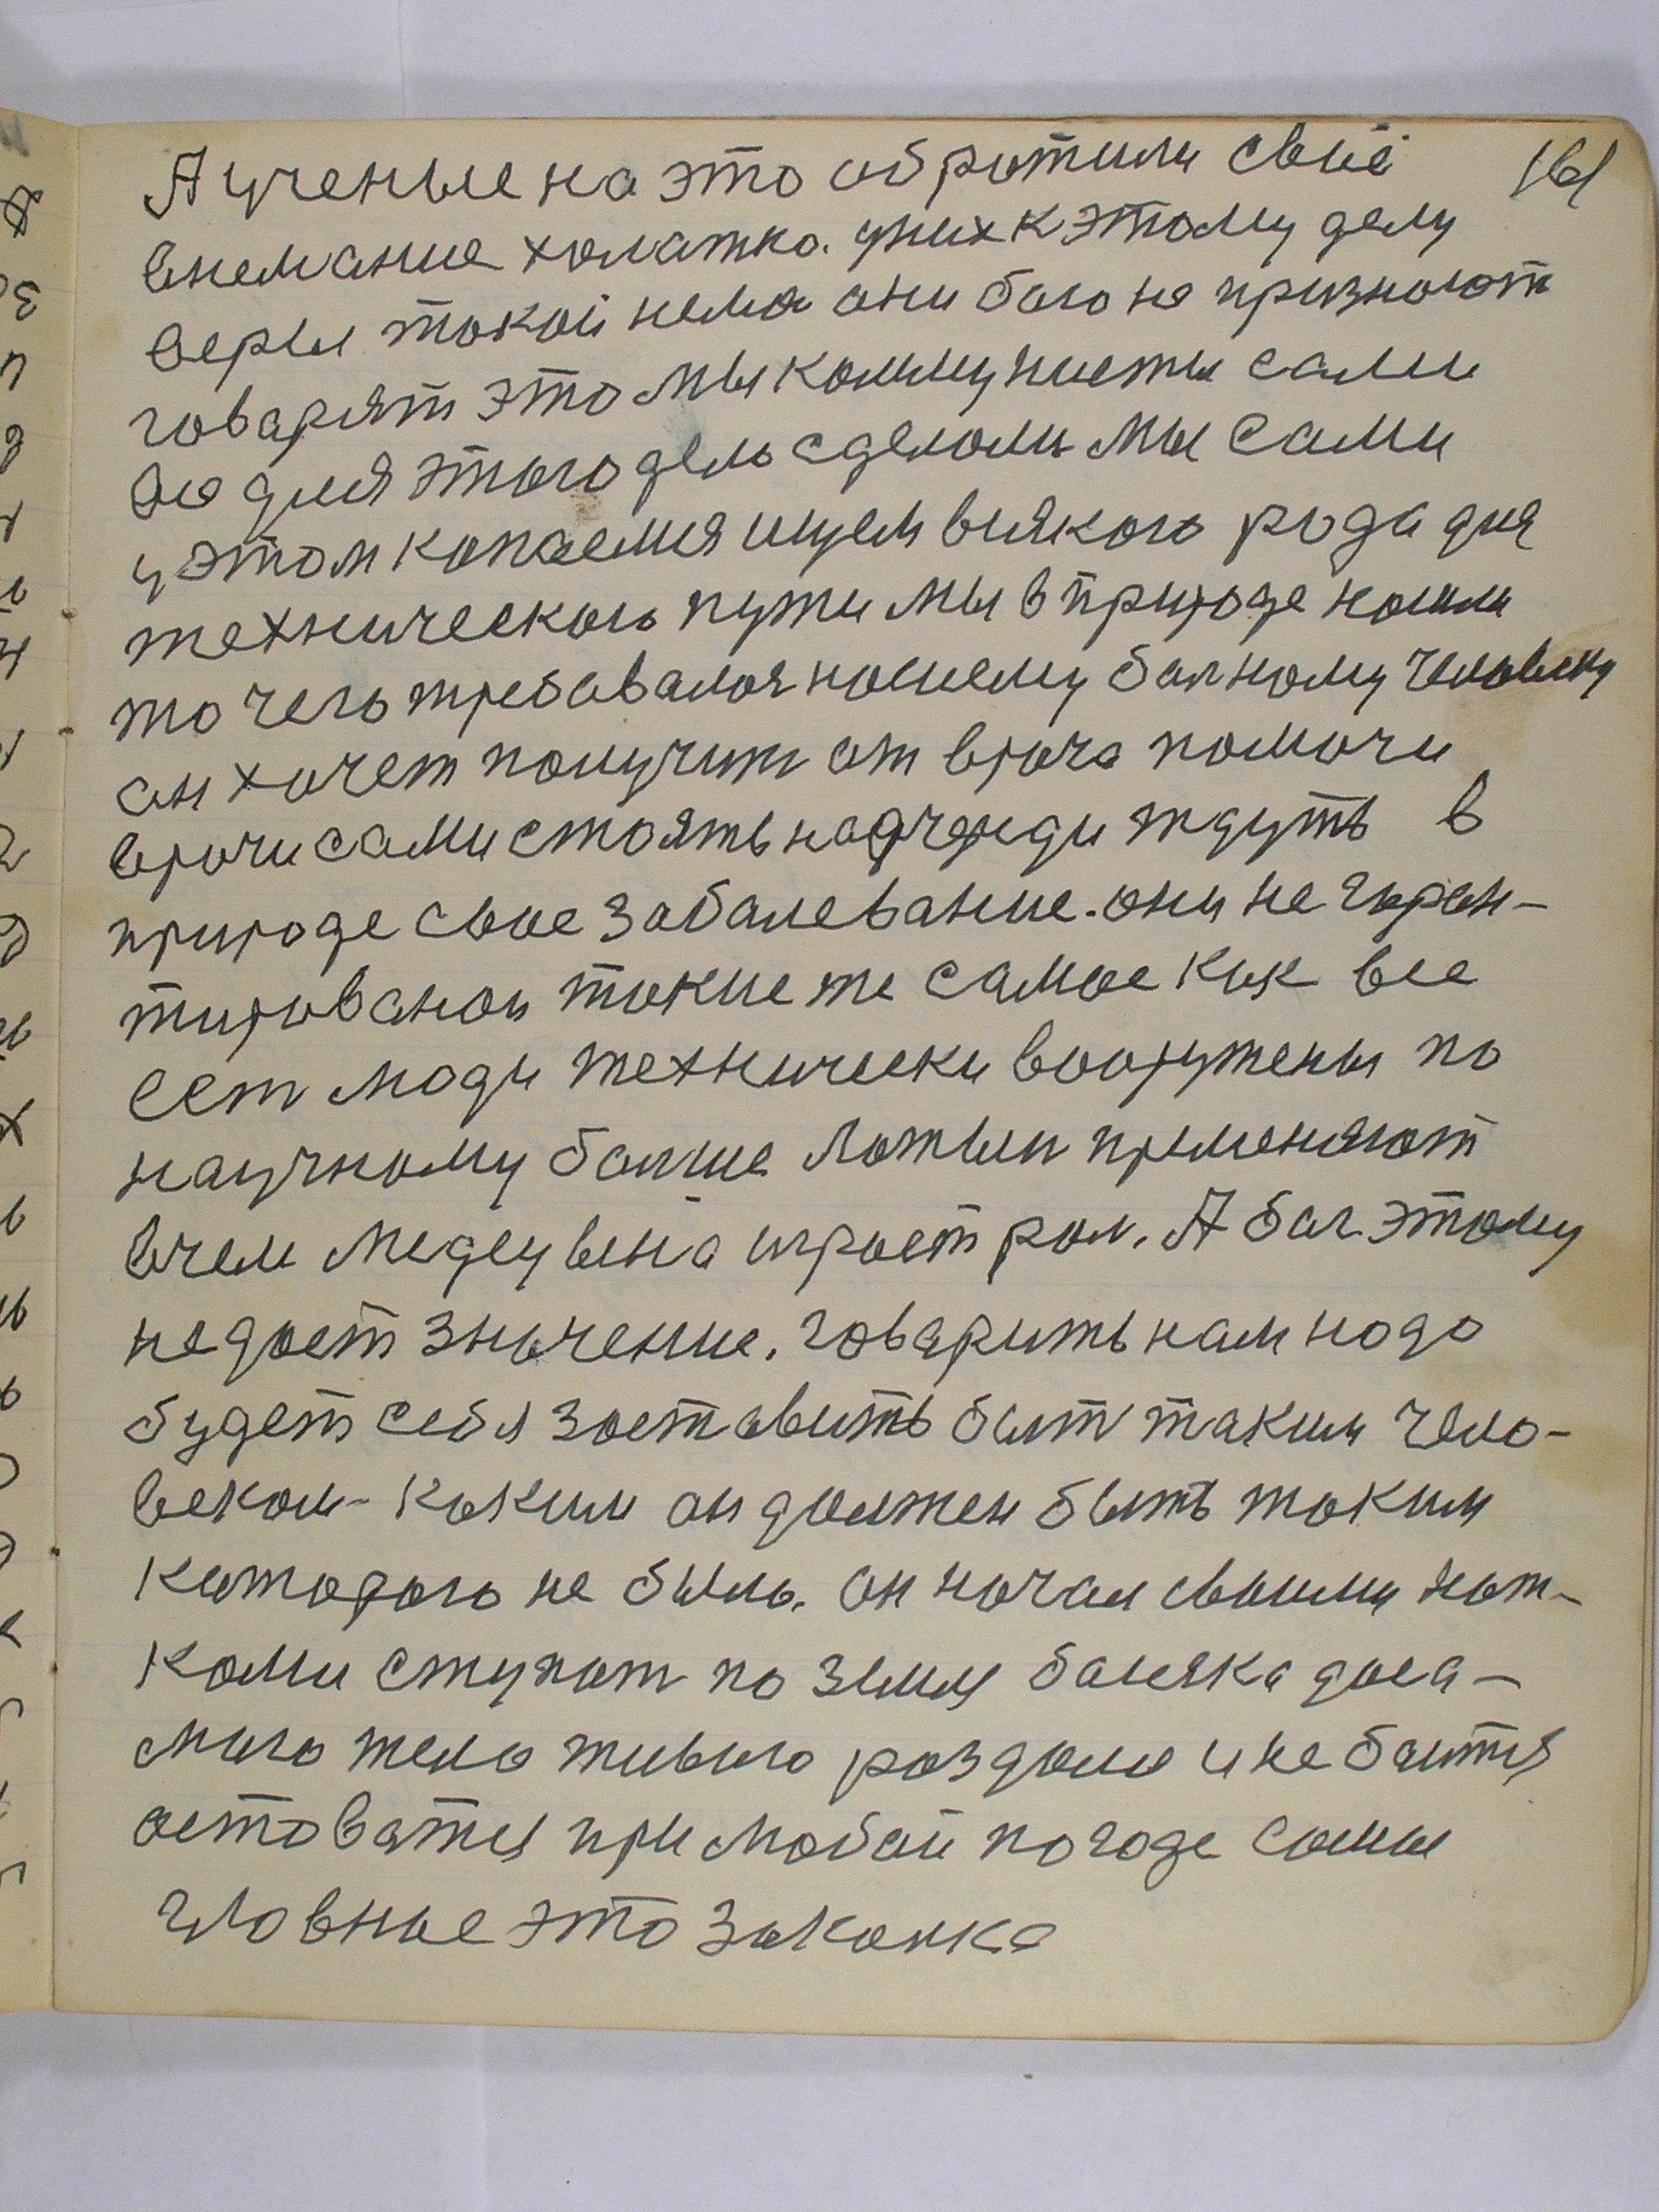 161
А ученые на это обротили своё
внемание холатно. уних к этому делу
веры токой нема они бога не призноют
говарят это мы коммунисты сами
все для этого дело сделоли мы сами
у этом копаемся ищем всякого рода для
технического пути мы в природе ношли
то чего требовалоя ношему болному человеку
он хочет получит от врача помочи
врочи сами стоять наочереди ждуть в
природе свое заболевание. они не гаран-
тированы токие же самое как все
ест люди технически вооружены по
научному болше ложью пременяют
в чем медецына играет рол. А бог этому
недоет значение. говарить нам надо
будет себя зоставить быт таким чело-
веком- каким он должен быть токим
каторого не было. он ночал своими нож-
коми ступат по земли босяка доса-
мого тело живого роздолю и не боится
остоватся при любой погоде самы
гловные это закалка